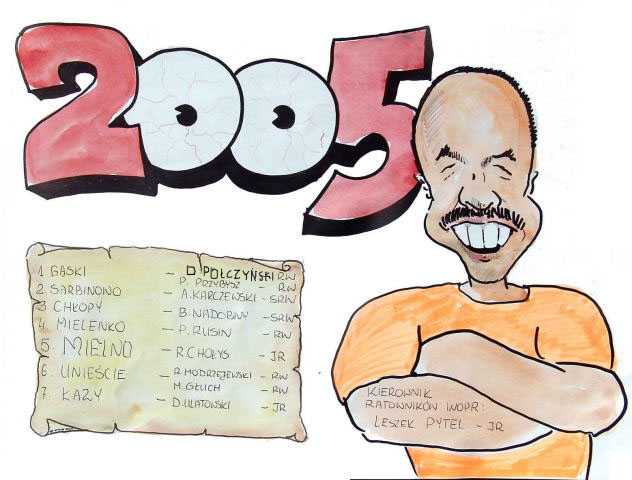 2005
1 GĄSKI – D POŁCZYŃSKI RW
P. PRZYBYSZ – RW
2 SARBINOWO – A. KARCZEWSKI – SRW
3 CHŁOPY – B. NADOBNY – SRW
4. MIELENKO – P. RUSIN – RW
5. MIELNO – R. CHOŁYS – JR
6. UNIEŚCIE – R. MODRZEJEWSKI – RW
M. GŁUCH – RW
7. ŁAZY – D. ULATOWSKI – JR
KIEROWNIK
RATOWNIKÓW WOPR:
LESZEK PYTEL – JR